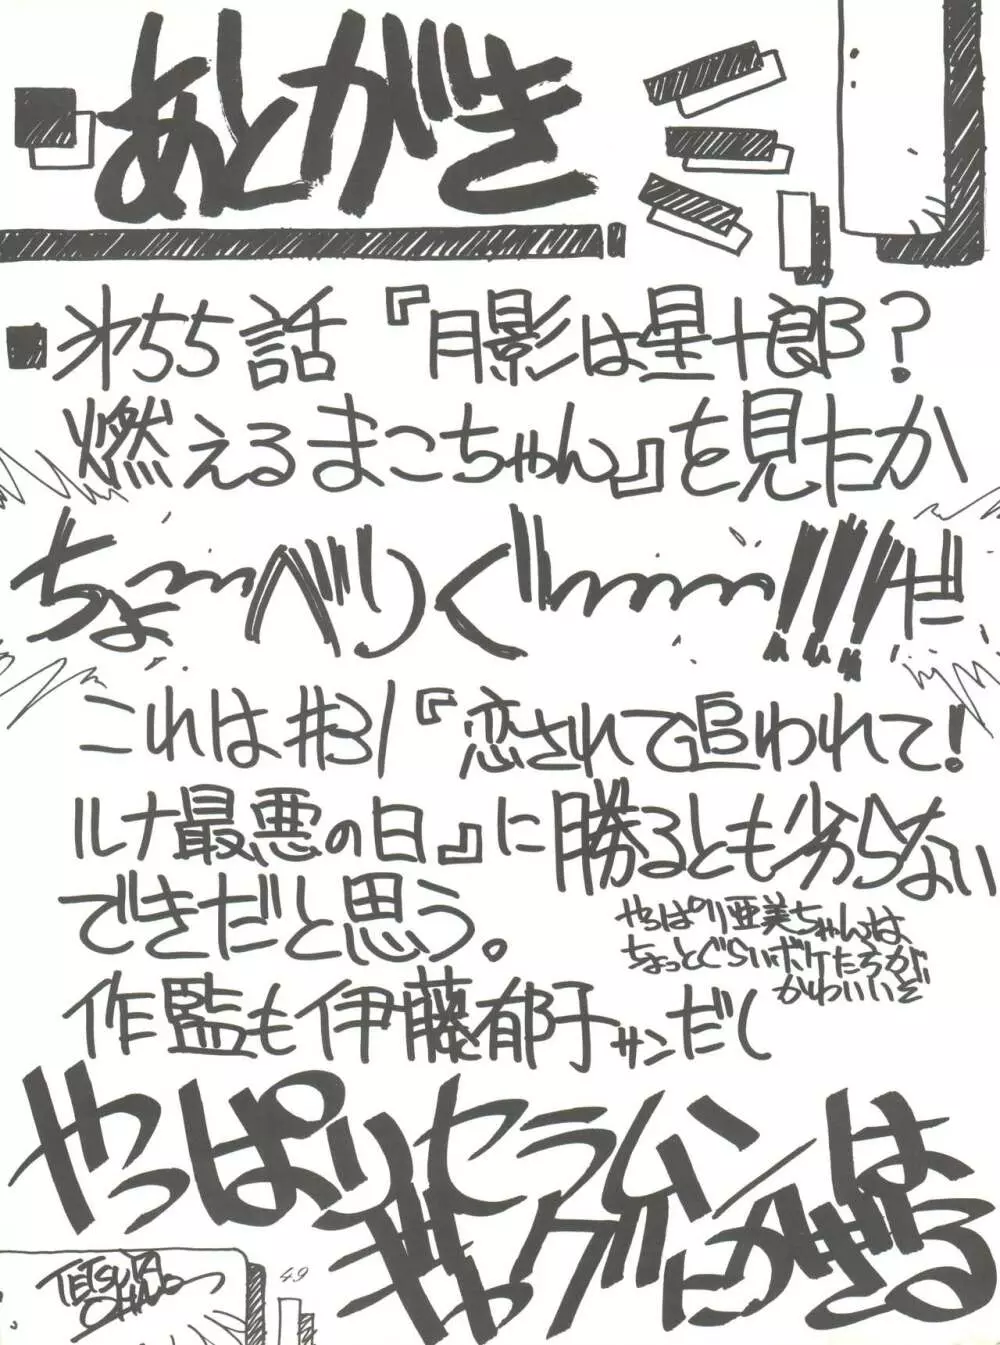 あとがき
■オ55話『月影は星十郎?
燃えるまこちゃん』を見たか
ちょ〜〜べりぐーーー!!!だ
これは#31『恋されて追われて!
ルナ最悪の日』に勝るとも劣らない
できだと思う。
やっぱり亜美ちゃんは、
ちょっとぐらいボケたろうが
かわいいぞ
作監も伊藤郁子サンだし
やっぱりセラムンは
ギャグにかぎる
TETSUYA
49